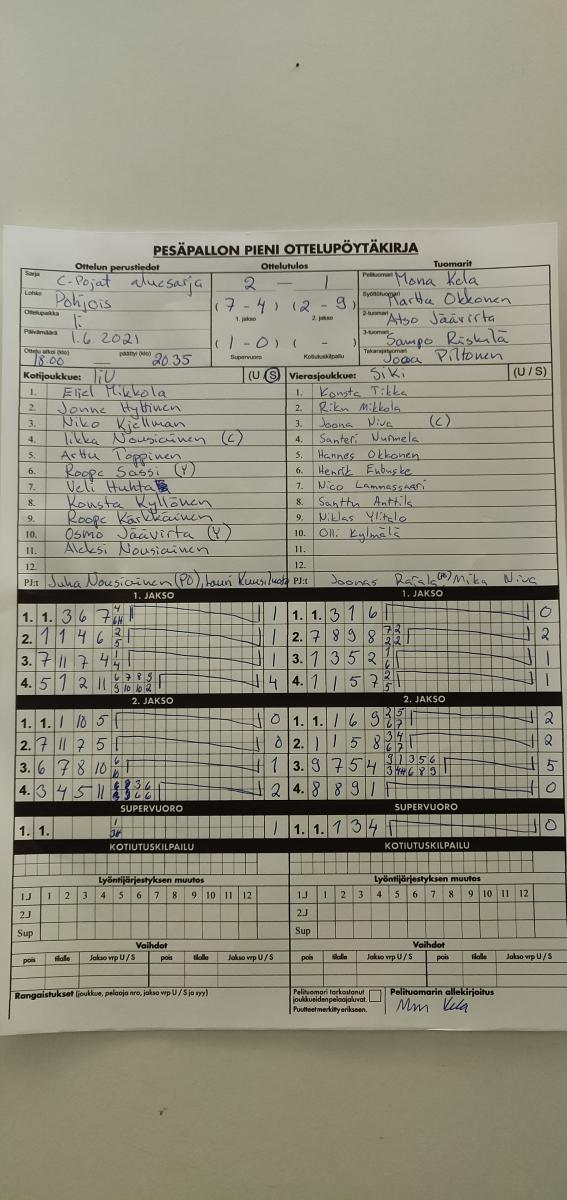 PESÄPALLON PIENI OTTELUPÖYTÄKIRJA
Ottelun perustiedot Ottelutulos Tuomarit
Sarja C-Pojat aluesarja 2 – 1 Pelituomari Mona Kela
Lohko Pohjois (7-4) (2-9) Syöttötuomari Martta Okkonen
Ottelupaikka Ii 1. jakso 2. jakso 2-tuomari Atso Jäävirta
Päivämäärä 1.6.2021 (1-0) ( - ) 3-tuomari Sampo
Ottelu alkoi (klo) 18.00 — päättyi (klo) 20.35 Supervuoro Kotiutuskilpailu Takarajatuomari Joona Piltonen
Kotijoukkue: IiU (U/S) Vierasjoukkue: SiKi (U/S)
1. Eljel Mikkola 1. Konsta Tikka
2. Jonne Hyttinen 2. Riku Mikkola
3. Niko Kjellman 3. Joona Niva (C)
4. Iikka Nousiainen (C) 4. Santeri Nurmela
5. Arttu Toppinen 5. Hannes Okkonen
6. Roope Sassi (Y) 6. Henrik
7. Veli Huhta 7. Nico Lammassaari
8. Konsta Kyllönen 8. Santtu Anttila
9. Roope Karkkainen 9. Niklas Ylitalo
10. Osmo Jäävirta (Y) 10. Olli Kylmälä
11. Aleksi Nousiainen 11.
12. 12.
PJ:t Juha Nousiainen (PO), Lauri PJ:t Joonas Rajala (PO) Mika Niva
1. JAKSO 1. JAKSO
1. 1. 3 6 7 4 6H 1 1. 1. 3 1 6 0
2. 1 1 4 6 2 5 1 2. 7 8 9 8 7 2 2 2 2
3. 7 11 7 4 1 4 1 3. 1 3 5 2 1 6 1
4. 5 1 2 11 6 7 8 9 9 10 10 2 4 4. 1 1 5 7 2 5 1
2. JAKSO 2. JAKSO
1. 1. 1 10 5 0 1. 1. 1 6 9 2 5 6 7 2
2. 7 11 7 5 0 2. 1 1 5 8 3 4 6 7 2
3. 6 7 8 10 6 10 1 3. 9 7 5 4 9 1 3 5 6 3 4H 6 8 9 5
4. 3 4 5 11 2 4. 8 8 9 1 0
SUPERVUORO SUPERVUORO
1. 1. 1 3H 1 1. 1. 1 3 4 0
KOTIUTUSKILPAILU KOTIUTUSKILPAILU
Lyöntijärjestyksen muutos Lyöntijärjestyksen muutos
1.J 1 2 3 4 5 6 7 8 9 10 11 12 1.J 1 2 3 4 5 6 7 8 9 10 11 12
2.J 2.J
Sup Sup
Vaihdot Vaihdot
pois tilalle Jakso vrp U / S pois tilalle Jakso vrp U / S pois tilalle Jakso vrp U / S pois tilalle Jakso vrp U / S
Rangaistukset (joukkue, pelaaja nro, jakso vrp U / S ja syy) Pelituomari tarkastanut Pelituomarin allekirjoitus
joukkueiden pelaajaluvat.
Puutteet merkitty erikseen. Kela